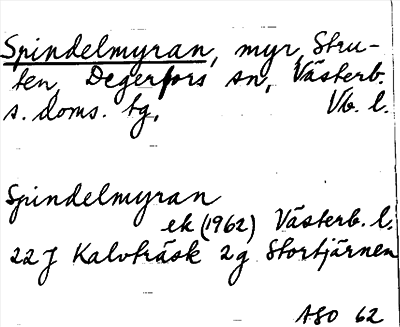 Spindelmyran, myr, Stru-
ten, Degerfors sn, Västerb.
s. doms. tg. Vb. l.
Spindelmyran
ek (1962) Västerb. l.
22 J Kalvträsk 2 g Stortjärnen
ASO 62